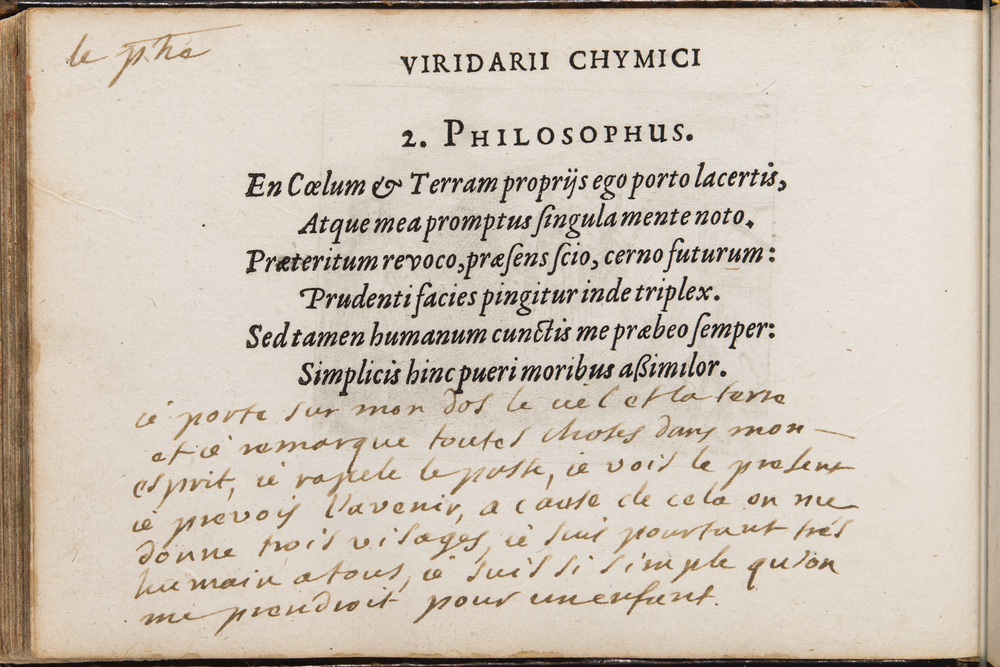 le phe
VIRIDARII CHYMICI
2. PHILOSOPHUS.
En Cœlum & Terram proprijs ego porto lacertis,
Atque mea promptus ſingula mente noto.
Præteritum revoco, præſens ſcio, cerno futurum:
Prudenti facies pingitur inde triplex.
Sed tamen humanum cunctis me præbeo ſemper:
Simplicis hinc pueri moribus aßimilor.
ie porte sur mon dos le ciel et la terre
et ie remarque toutes choses dans mon —
esprit, ie rapele le passe, ie vois le present
ie prevois l'avenir, a cause de cela on me
donne trois visages, ie suis pourtant tres
humain a tous, ie suis si simple qu'on
me prendroit pour un enfant.